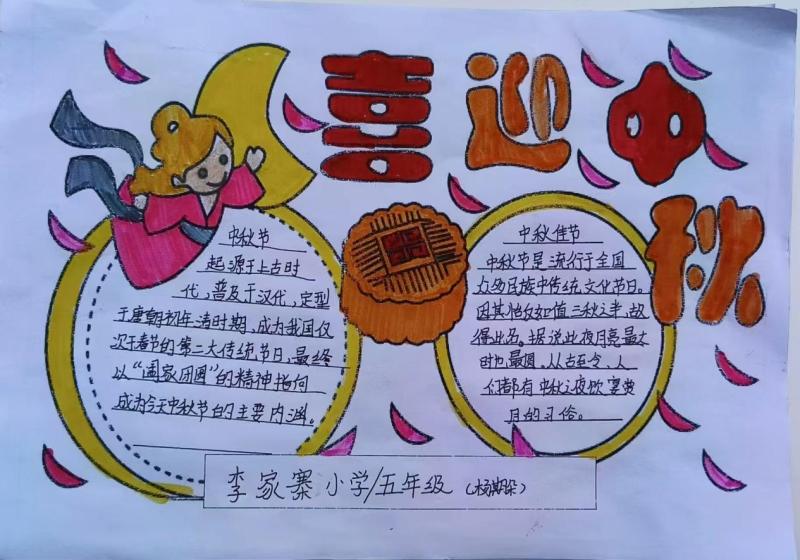 喜迎中秋
中秋节
起源于上古时
代,普及于汉代,定型
于唐朝初年,清时期,成为我国仅
次于春节的第二大传统节日,最终
以“阖家团圆”的精神指向
成为今天中秋节的主要内涵。
中秋佳节
中秋节是流行于全国
众多民族中传统文化节日。
因其恰好值三秋之半,故
得此名。据说此夜月亮最大
时也最圆。从古至今,人
们都有中秋之夜饮宴赏
月的习俗。
李家寨小学/五年级(杨 朵)